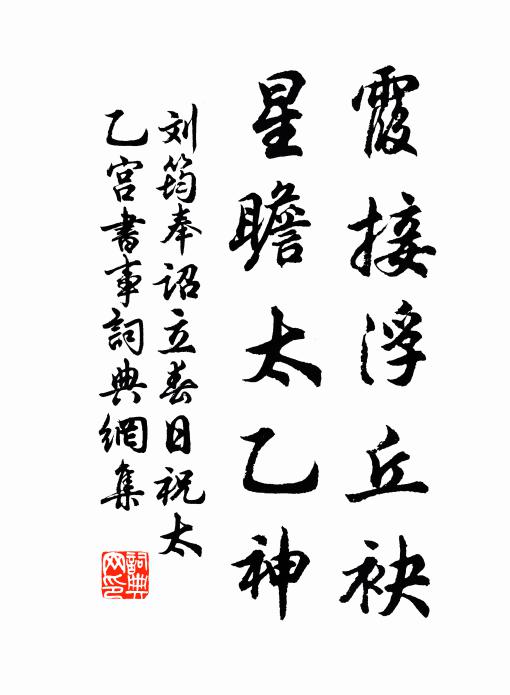 霞接浮丘袂
星瞻太乙神
刘筠奉诏立春日祝太
乙宫書事詞典網集
詞典
网印